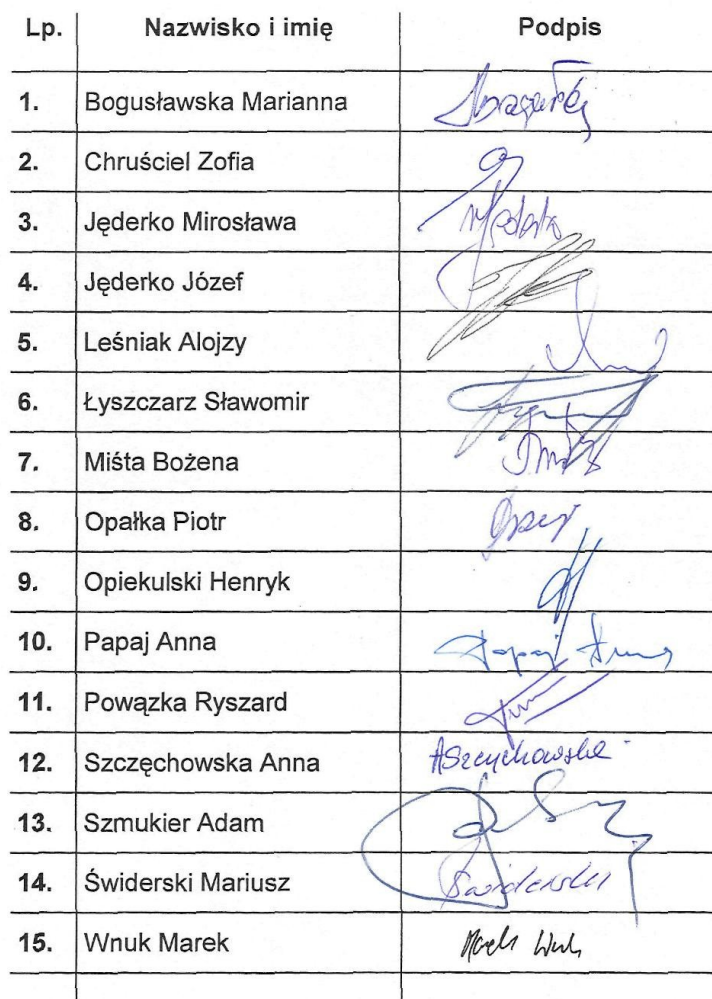 Lp. Nazwisko i imię Podpis
1. Bogusławska Marianna
2. Chruściel Zofia
3. Jęderko Mirosława
4. Jęderko Józef
5. Leśniak Alojzy
6. Łyszczarz Sławomir
7. Miśta Bożena
8. Opałka Piotr
9. Opiekulski Henryk
10. Papaj Anna Papaj Anna
11. Powązka Ryszard
12. Szczęchowska Anna
13. Szmukier Adam
14. Świderski Mariusz Świderski
15. Wnuk Marek Marek Wnuk